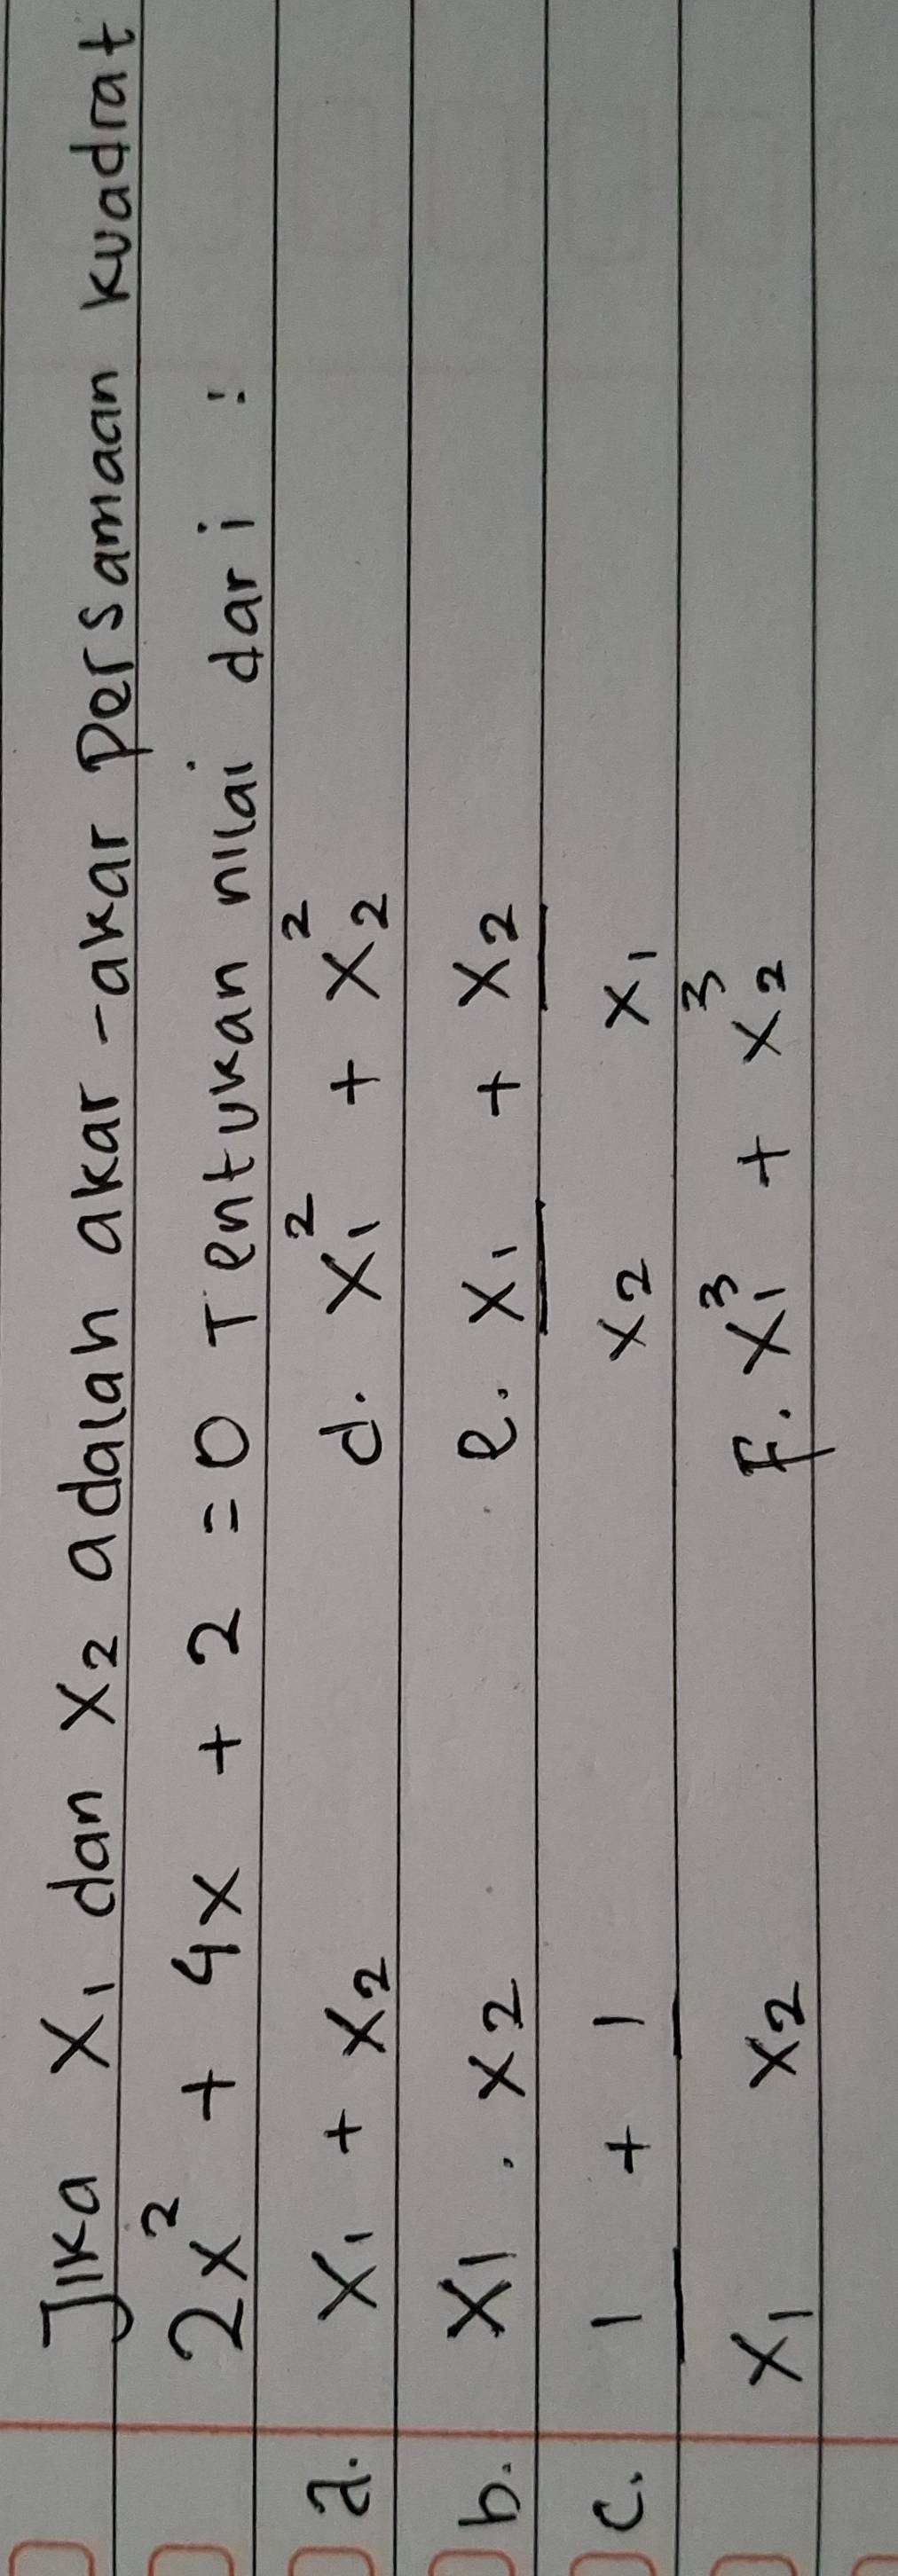 Jika x₁ dan x₂ adalah akar-akar persamaan kuadrat
2x² + 4x + 2 = 0 Tentukan nilai dari :
a. x₁ + x₂ d. x₁² + x₂²
b. x₁ . x₂ e. x₁/x₂ + x₂/x₁
c. 1/x₁ + 1/x₂ F. x₁³ + x₂³